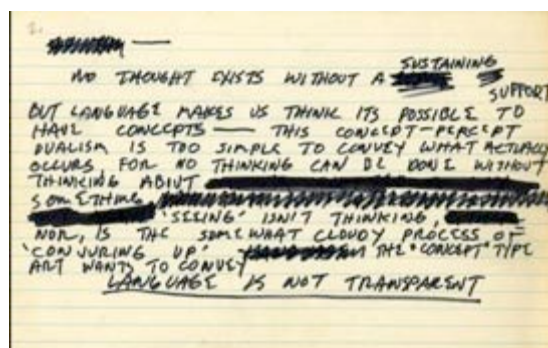 2.
NO THOUGHT EXISTS WITHOUT A SUSTAINING
SUPPORT
BUT LANGUAGE MAKES US THINK ITS POSSIBLE TO
HAVE CONCEPTS — THIS CONCEPT-PERCEPT
DUALISM IS TOO SIMPLE TO CONVEY WHAT ACTUALLY
OCCURS, FOR NO THINKING CAN BE DONE WITHOUT
THINKING ABOUT
SOMETHING
'SEEING' ISN'T THINKING,
NOR, IS THE SOMEWHAT CLOUDY PROCESS OF
'CONJURING UP' THE "CONCEPT" TYPE
ART WANTS TO CONVEY
LANGUAGE IS NOT TRANSPARENT